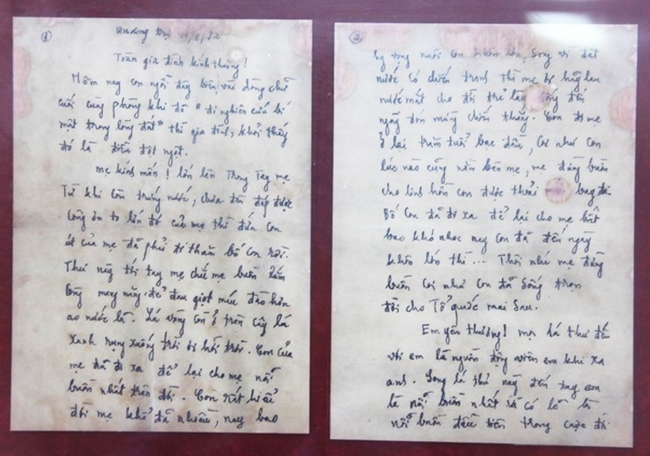 ①
Quảng trị 11/9/72
Toàn gia đình kính thương!
Hôm nay con ngồi đây biên vài dòng chữ
cuối cùng phòng khi đã "đi nghiên cứu bí
mật trong lòng đất" thì gia đình khỏi thấy
đó là điều đột ngột.
Mẹ kính mến! lớn lên trong tay mẹ
Từ khi còn trứng nước, chưa đền đáp được
công ơn to lớn đó của mẹ thì đứa con
út của mẹ đã phải đi thăm bố con rồi.
Thư này tới tay mẹ chắc mẹ buồn lắm
lòng may này để đau giọt máu đào hơn
ao nước lã. Lá vàng còn ở trên cây lá
xanh rụng xuống trời ơi hỡi trời. Con của
mẹ đã đi xa để lại cho mẹ nỗi
buồn nhất trên đời. Con rất hiểu
đời mẹ khổ đã nhiều, nay bao
②
hy vọng nuôi con khôn lớn, Song vì đất
nước có chiến tranh thì mẹ ơi hãy lau
nước mắt cho đời trẻ lâu sống đến
ngày đón mừng chiến thắng. Con đi mẹ
ở lại trăm tuổi bạc đầu, coi như con
lúc nào cũng nằm bên mẹ, mẹ đừng buồn
cho linh hồn con được thoải mái bay đi.
Bố con đã đi xa để lại cho mẹ biết
bao khó nhọc nay con đã đến ngày
khôn lớn thì... Thôi như mẹ đừng
buồn coi như con đã sống trọn
đời cho Tổ quốc mai sau.
Em yêu thương! mọi lá thư đến
với em là nguồn động viên em khi xa
anh. Song lá thư này đến tay em
là nỗi buồn nhất và có lẽ là
nỗi buồn đầu tiên trong cuộc đời